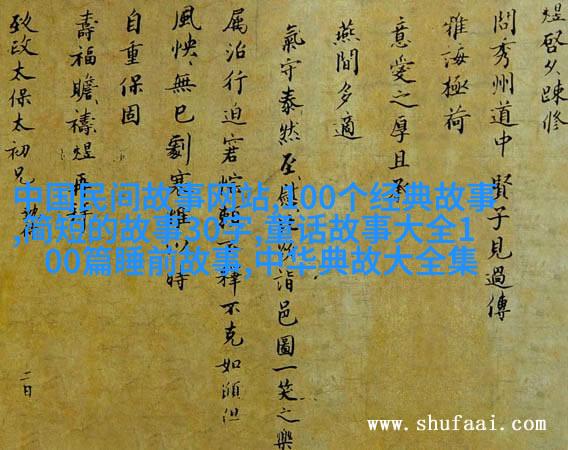 煜啓久踈修
問秀州道中賢子見過傳
雅誨極荷
意愛之厚且承
燕閒多適
氣守泰然至詣邑圖一笑之樂
屬治行迫窘不克如願但
風怏無已劇寒惟時
自重保固
壽福瞻禱煜再拜
致政太保太初兄
二日
中国民间故事网站,100个经典故事
,简短的故事30字,童话故事大全1
00篇睡前故事,中华典故大全集
www.shufaai.com